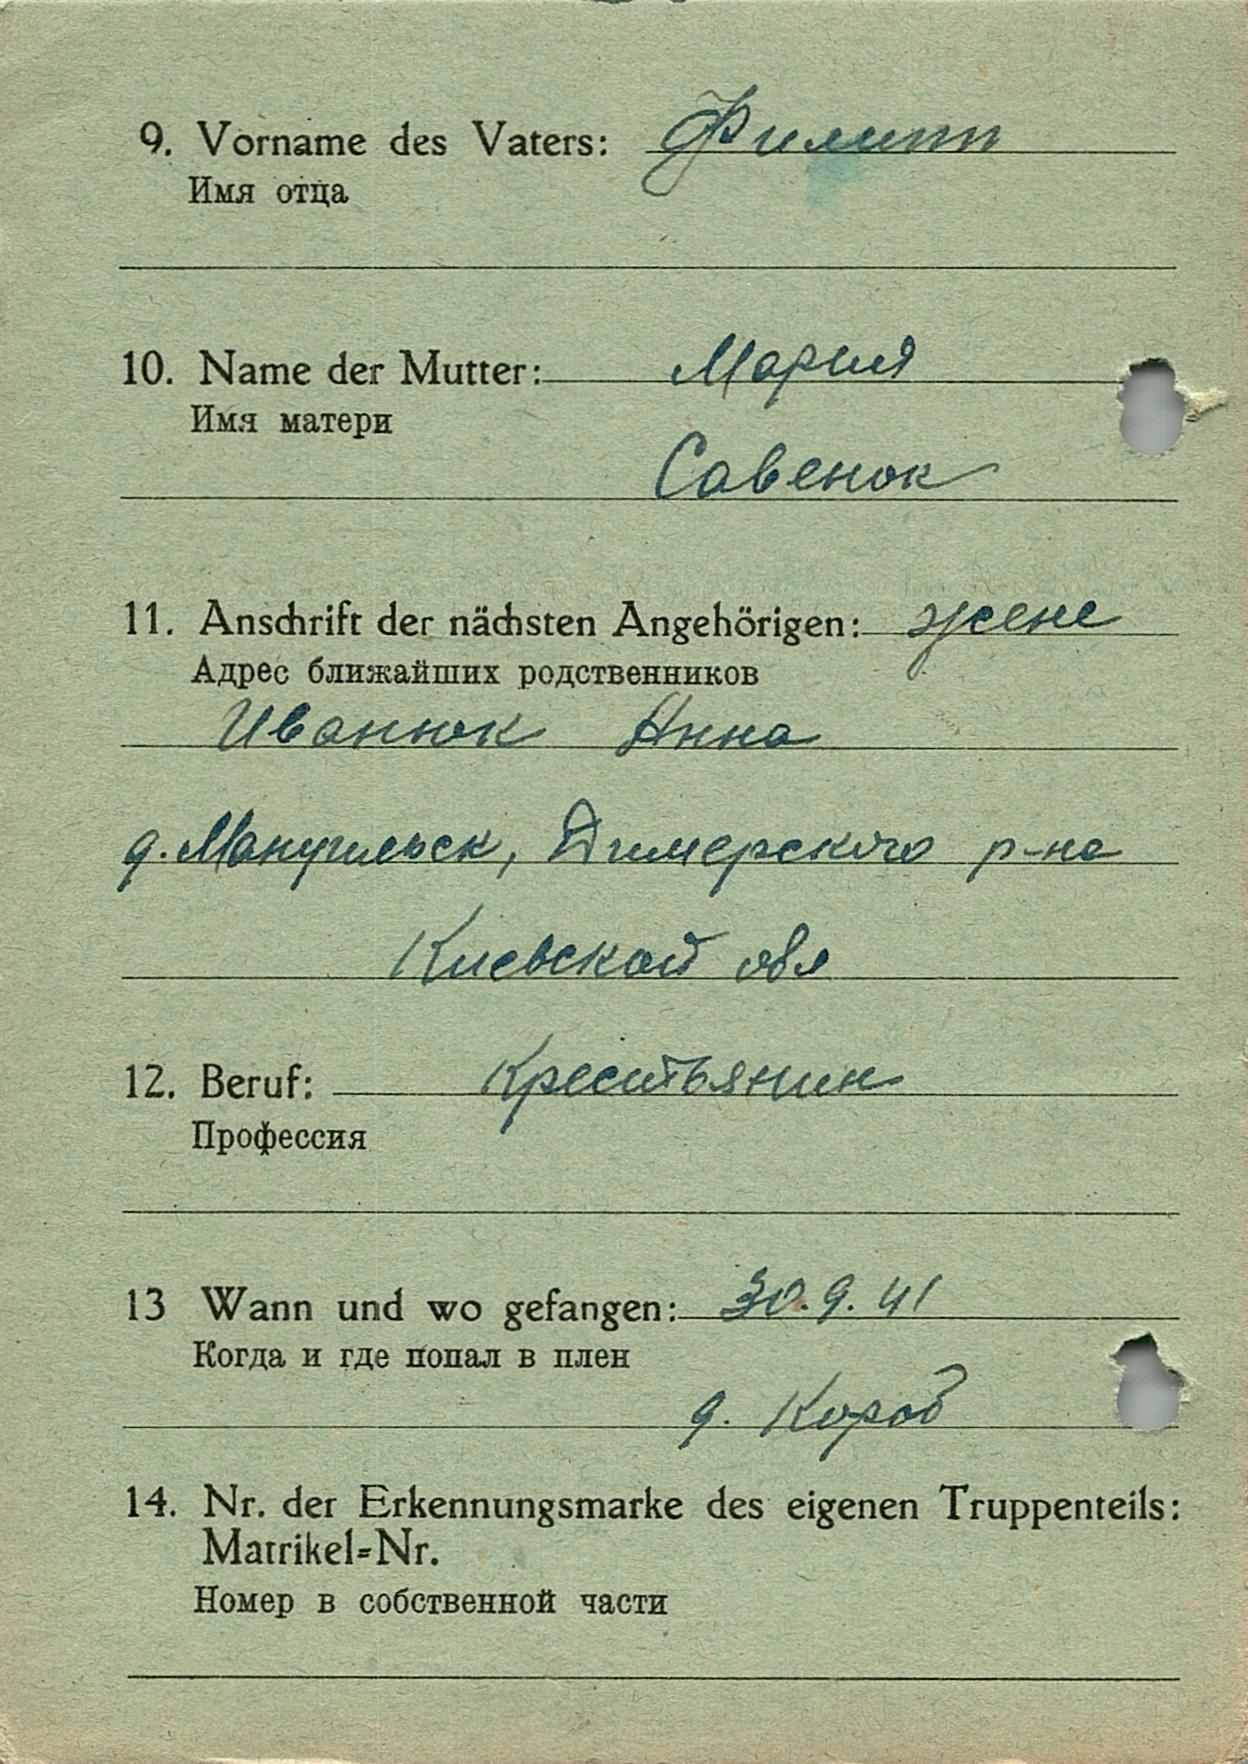 9. Vorname des Vaters: Филипп
Имя отца
10. Name der Mutter: Мария
Имя матери
Савенок
11. Anschrift der nächsten Angehörigen: жене
Адрес ближайших родственников
Иванюк Анна
д. Мануильск, Димерского р-на
Киевской обл
12. Beruf: Крестьянин
Профессия
13 Wann und wo gefangen: 30.9.41
Когда и где попал в плен
д. Короб
14. Nr. der Erkennungsmarke des eigenen Truppenteils:
Matrikel=Nr.
Номер в собственной части